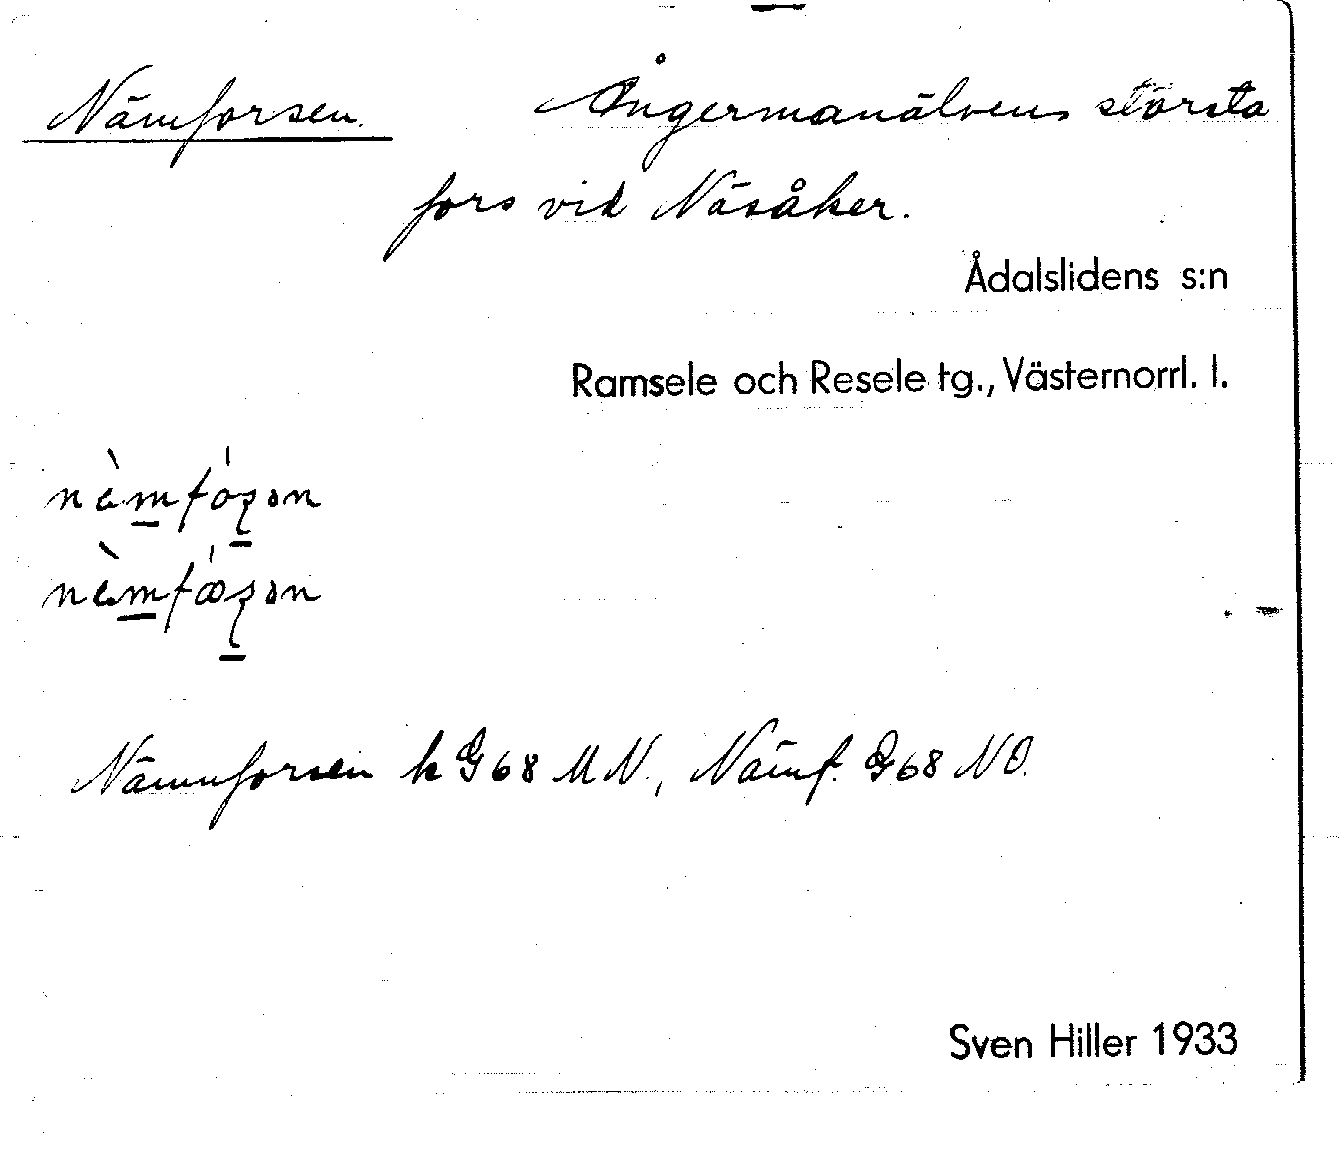 Nämforsen. Ångermanälvens största
fors vid Näsåker.
Ådalslidens s:n
Ramsele och Resele tg., Västernorrl. l.
Nämnforsen k G68 MN., Nämf. G68 NO.
Sven Hiller 1933